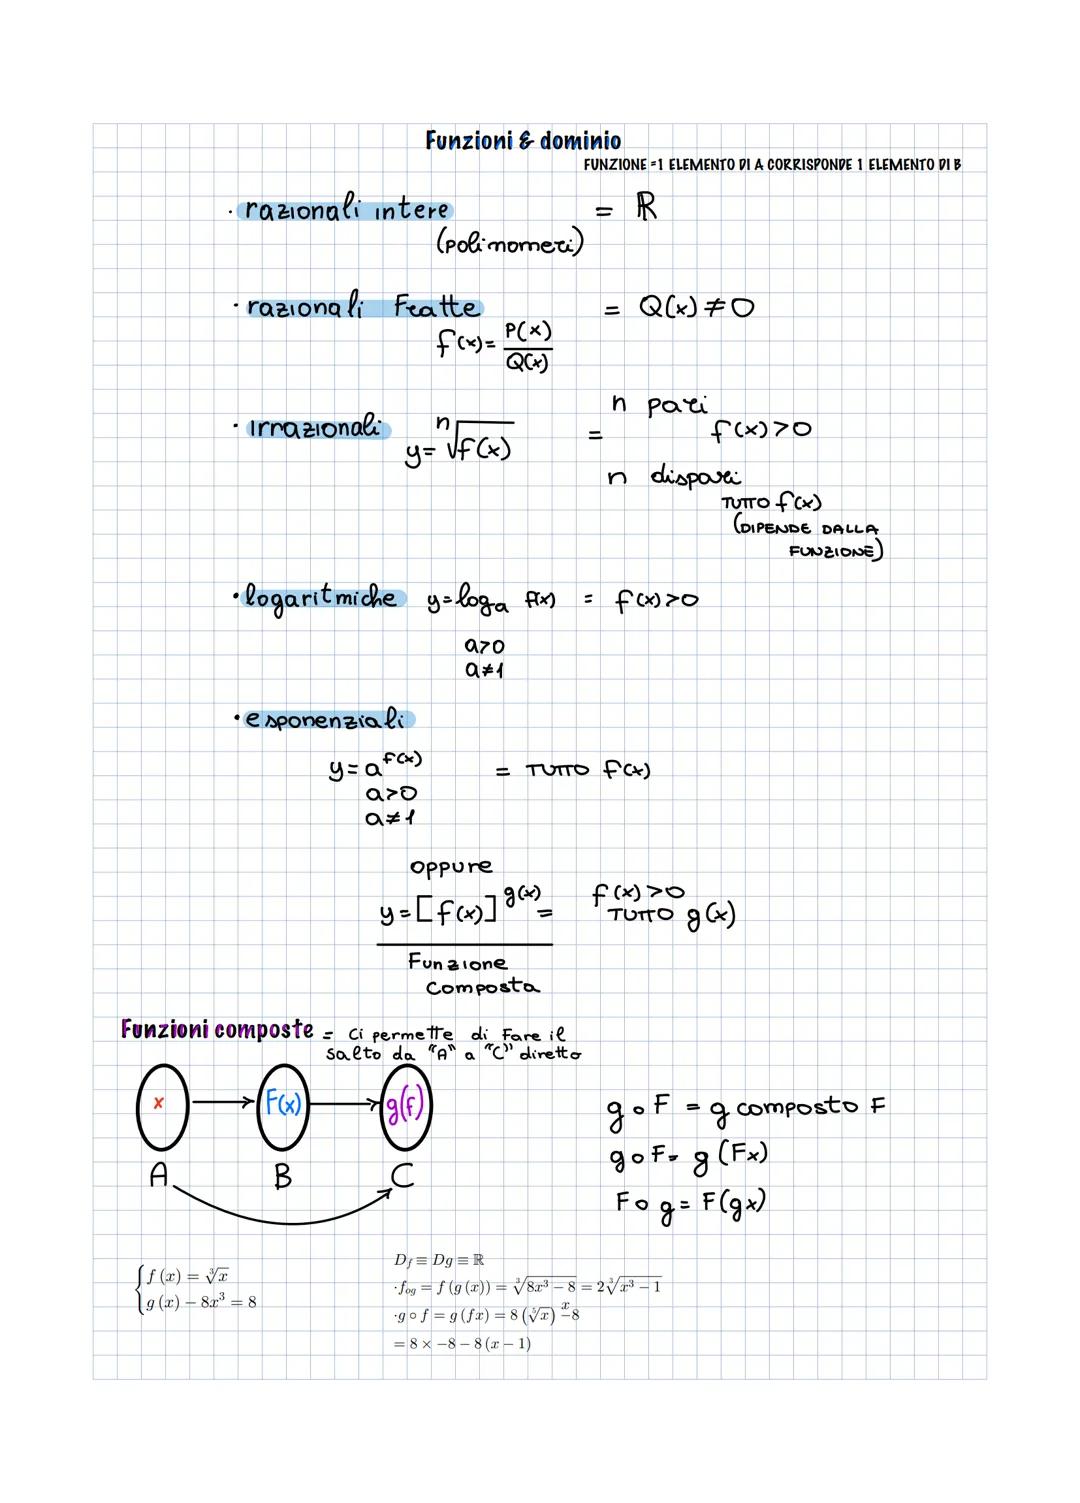 Funzioni & dominio
FUNZIONE =1 ELEMENTO DI A CORRISPONDE 1 ELEMENTO DI B
· razionali intere = ℝ
(polinomeri)
· razionali Fratte = Q(x) ≠ 0
f(x) = P(x)/Q(x)
n pari
· irrazionali y = ⁿ√f(x) = f(x)>0
n dispari
TUTTO f(x)
(DIPENDE DALLA
FUNZIONE)
· logaritmiche y = logₐ f(x) = f(x)>0
a>0
a≠1
· esponenziali
y = a^f(x) = TUTTO f(x)
a>0
a≠1
oppure
y = [f(x)]^g(x) = f(x)>0
TUTTO g(x)
Funzione
Composta
Funzioni composte = Ci permette di Fare il
salto da "A" a "C" diretto
x F(x) g(f)
A B C
g∘F = g composto F
g∘F = g(Fx)
F∘g = F(gx)
{ f (x) = ∛x
g (x) − 8x³ = 8
D_f ≡ Dg ≡ ℝ
·f_og = f (g (x)) = ∛(8x³ − 8) = 2∛(x³ − 1)
·g ∘ f = g (fx) = 8 (∛x) x −8
= 8 × −8 − 8 (x − 1)